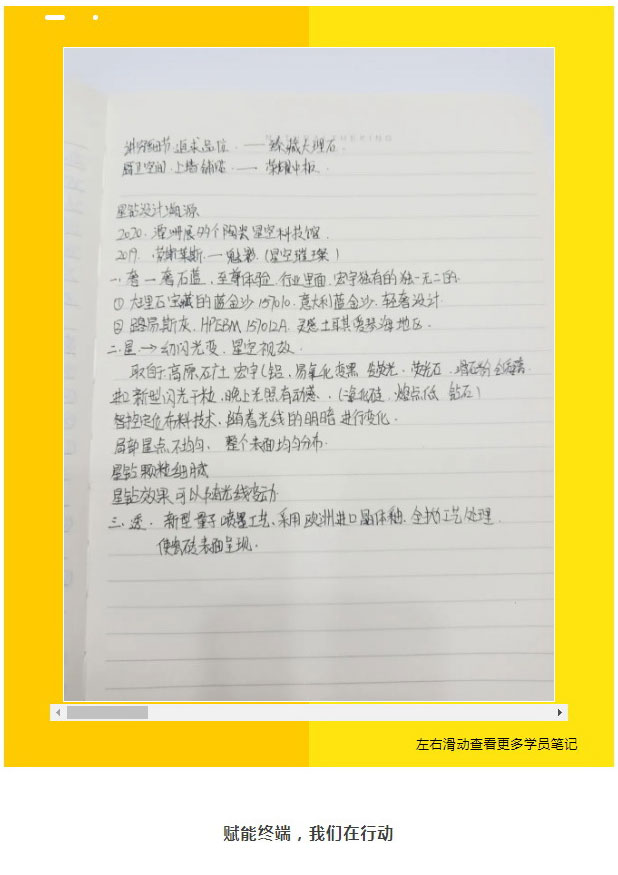 讲究细节 追求品位 —— 臻藏大理石.
墙卫空间. 上墙铺贴 —— 荣耀中板.
星钻设计溯源
2020. 潭洲展 99个陶瓷星空科技馆.
2019. 劳斯莱斯 — 魅影 (星空璀璨)
一. 奢 — 奢石蓝, 至尊体验. 行业里面. 宏宇独有的独一无二的.
① 大理石宝藏的蓝金沙 157010. 意大利蓝金沙. 轻奢设计.
② 路易斯灰. HPEBM 157012A. 灵感土耳其爱琴海地区.
二. 星 → 幻闪光变. 星空视效.
取自于: 高原石/土 宏宇(铝, 易氧化变黑 荧光石
进口新型闪光干粒, 晚上光照有动感. (氧化硅. 熔点低 钻石)
智控定位布料技术, 随着光线的明暗进行变化.
局部星点不均匀、整个表面均匀分布.
星钻颗粒细腻
星钻效果可以随光线变动
三. 透. 新型量子喷墨工艺, 采用欧洲进口晶体釉. 全抛工艺处理.
使瓷砖表面呈现.
左右滑动查看更多学员笔记
赋能终端，我们在行动